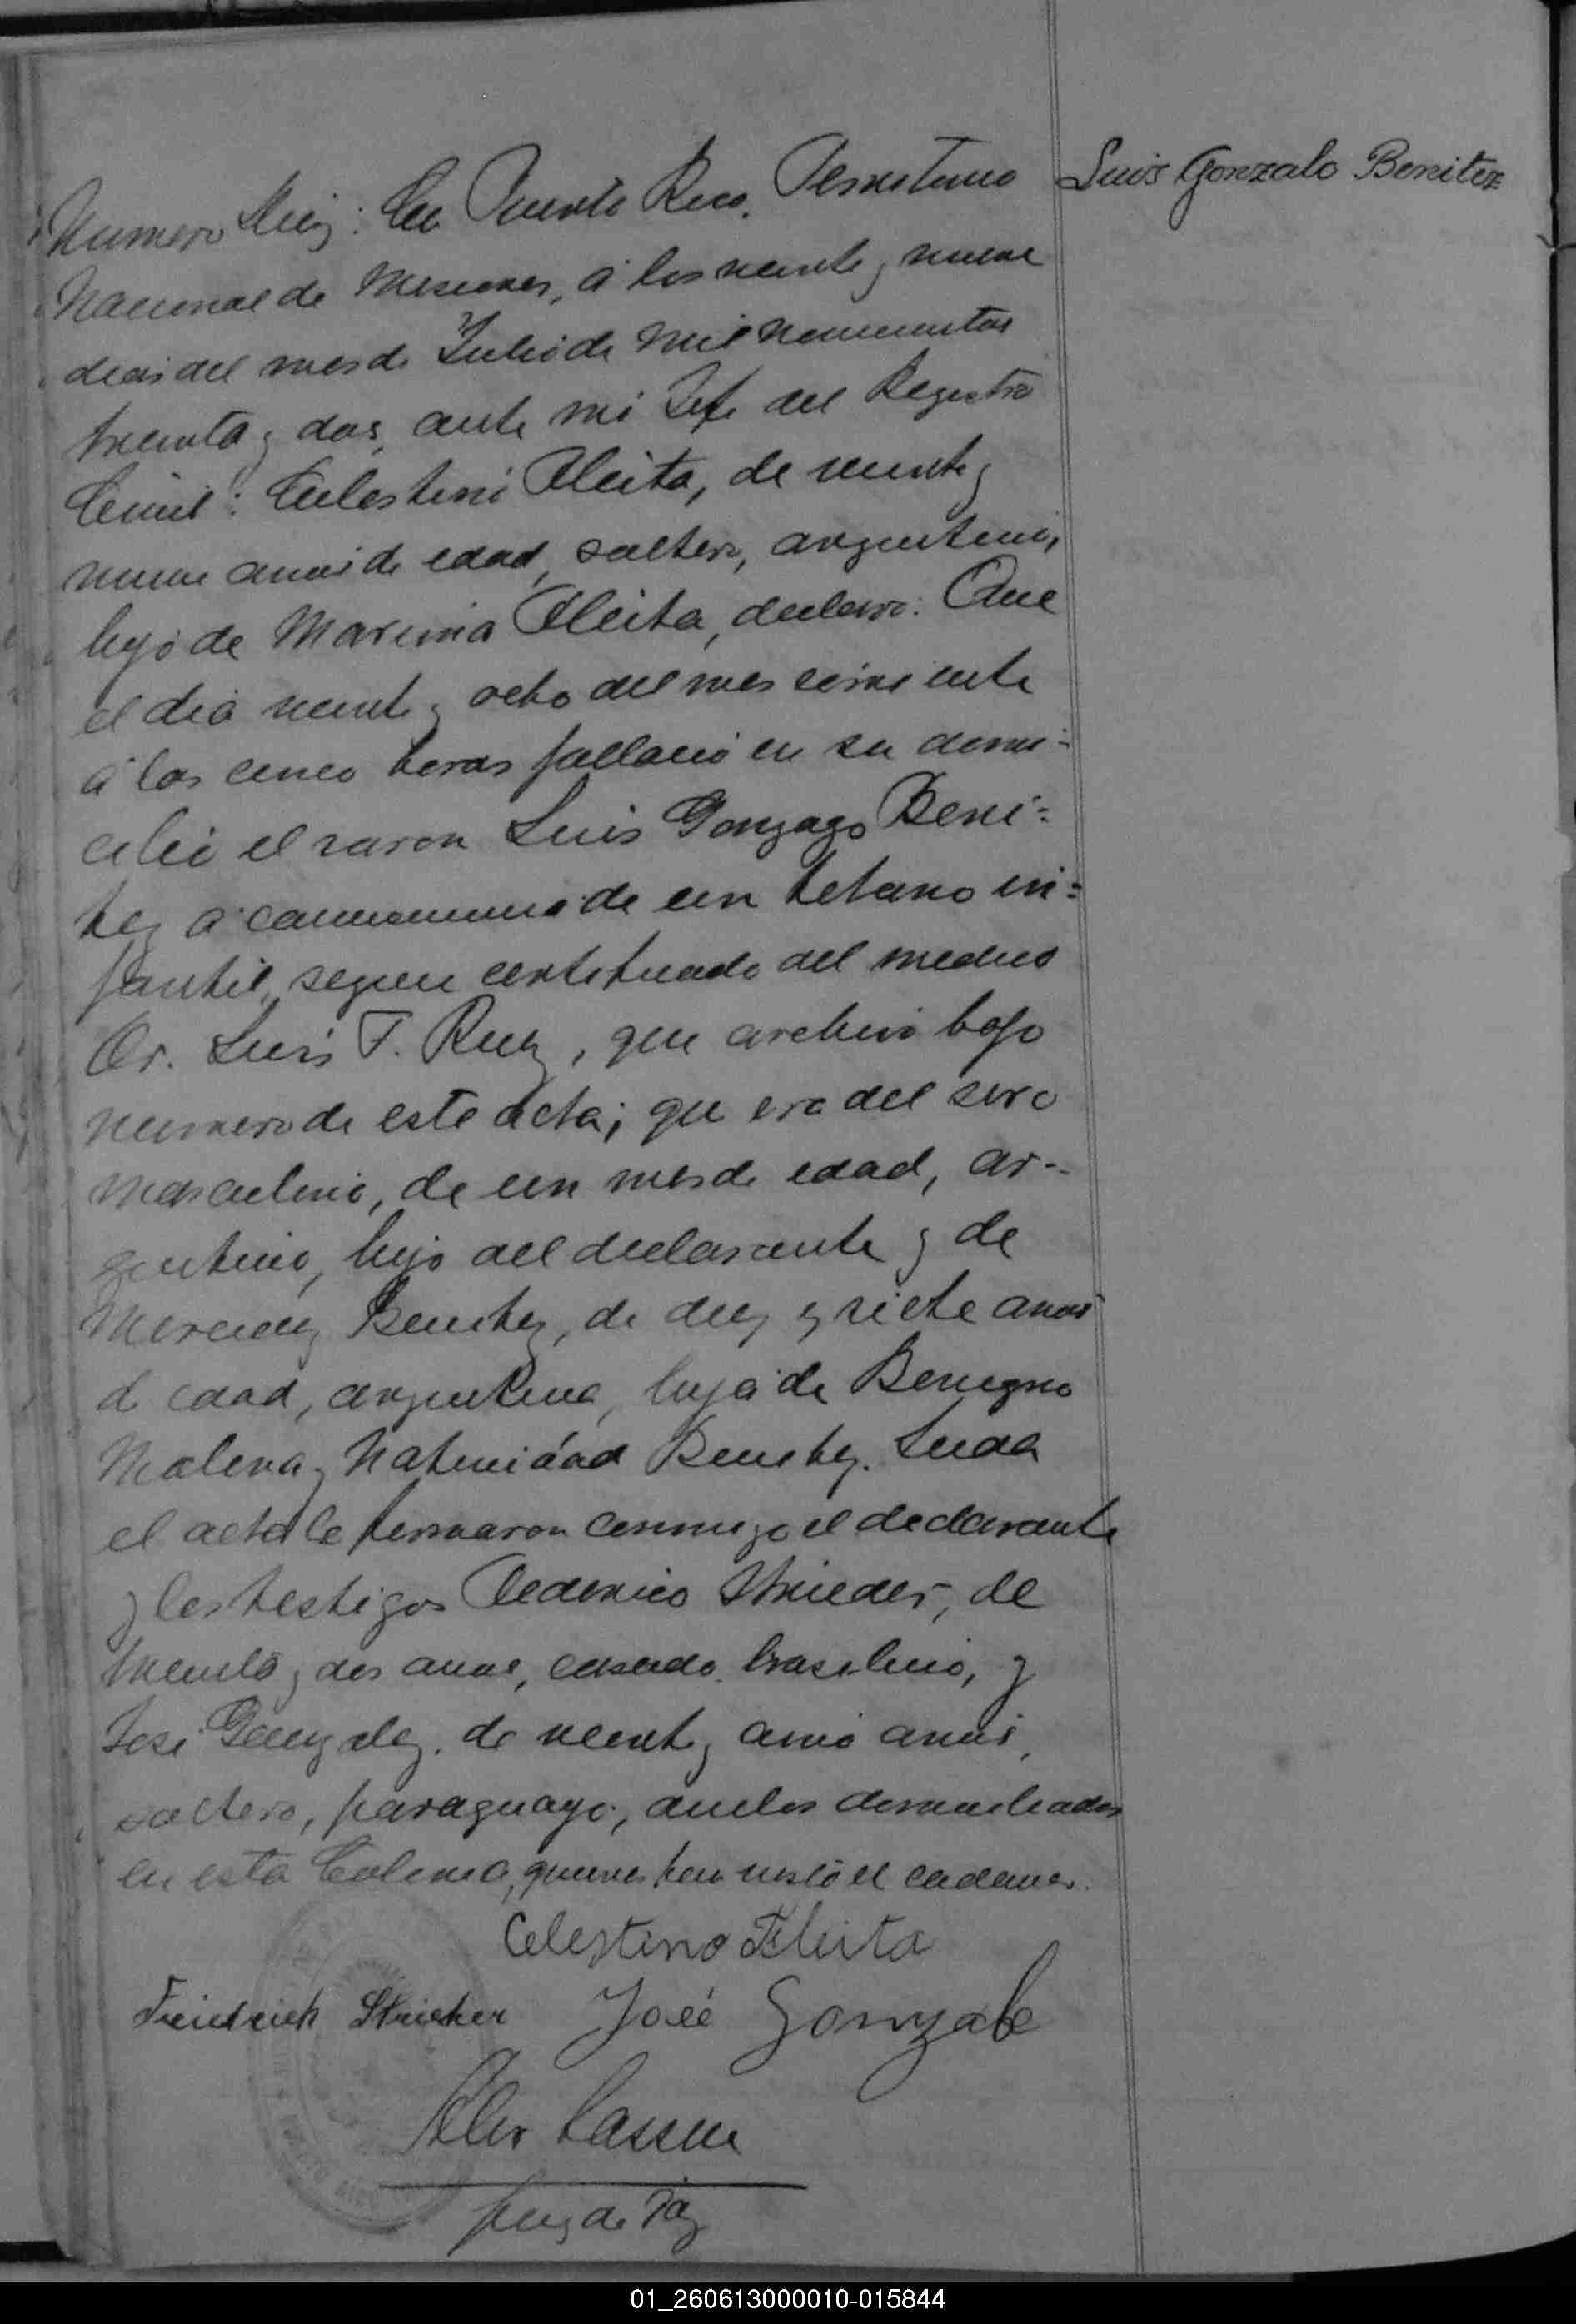 Luis Gonzalo Benitez
Numero Diez: En Puerto Rico, Territorio
Nacional de Misiones, á los veinte y nueve
dias del mes de Julio de mil novecientos
treinta y dos, ante mi Jefe del Registro
Civil: Celestino Fleita, de veinte y
nueve años de edad, soltero, argentino,
hijo de Maxima Fleita, declaro: Que
el dia veinte y ocho del mes corriente
á las cinco horas fallecio en su domi=
cilio el varon Luis Gonzago Beni=
tez á consecuencia de un tetano in=
fantil, segun certificado del medico
Dr. Luis F. Ruiz, que archivo bajo
numero de este acta; que era del sexo
masculino, de un mes de edad, ar-
gentino, hijo del declarante y de
Mercedez Benitez, de diez y siete años
de edad, argentina, hija de Benigno
Molena y Natividad Benitez. Leida
el acta la firmaron conmigo el declarante
y los testigos Federico Strieder, de
treinta y dos años, casado, brasilero, y
José Gonzalez, de veinte y cinco años,
soltero, paraguayo, ambos domiciliados
en esta Colonia, quienes han visto el cadaver.
Celestino Fleita
Friedrich Strieder José Gonzale
Juez de Paz
01_260613000010-015844